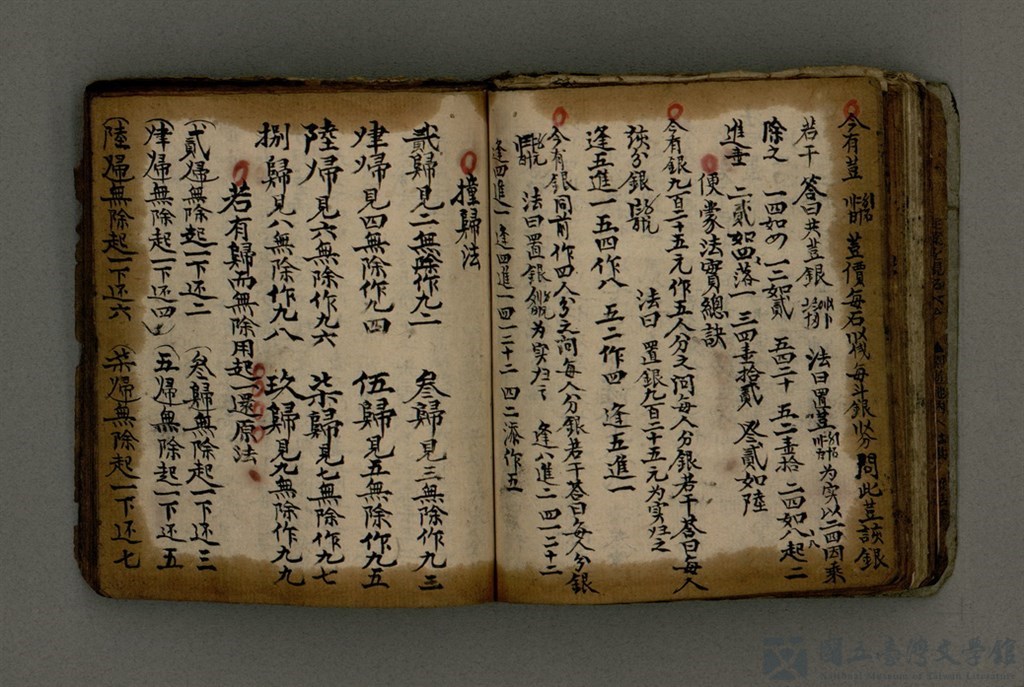 今有荳 荳價每石 每斗銀 問此荳該銀
若干 答曰共荳銀 法曰置荳 為实以二四因乘
除之 一四如四 一二如貳 五四二十 五二壹拾 二四如八起二
進壹 二貳如四落一 三四壹拾貳 叁貳如陸
便蒙法實總訣
今有銀九百二十五元作五人分之问每人分銀若干答曰每人
該分銀 法曰 置銀九百二十五元为实归之
逢五進一 五四作八 五二作四 逢五進一
今有銀同前作四人分之问每人分銀若干答曰每人分銀
法曰置銀 为实归之 逢八進二 四一二十二
逢四進一 逢四進一 四一二十二 四二添作五
撞歸法
貳歸見二無除作九二 叁歸見三無除作九三
肆歸見四無除作九四 伍歸見五無除作九五
陸歸見六無除作九六 柒歸見七無除作九七
捌歸見八無除作九八 玖歸見九無除作九九
若有歸而無除用起一還原法
貳歸無除起一下还二 叁歸無除起一下还三
肆歸無除起一下还四 五歸無除起一下还五
陸歸無除起一下还六 柒歸無除起一下还七
國立臺灣文學館
National Museum of Taiwan Literature